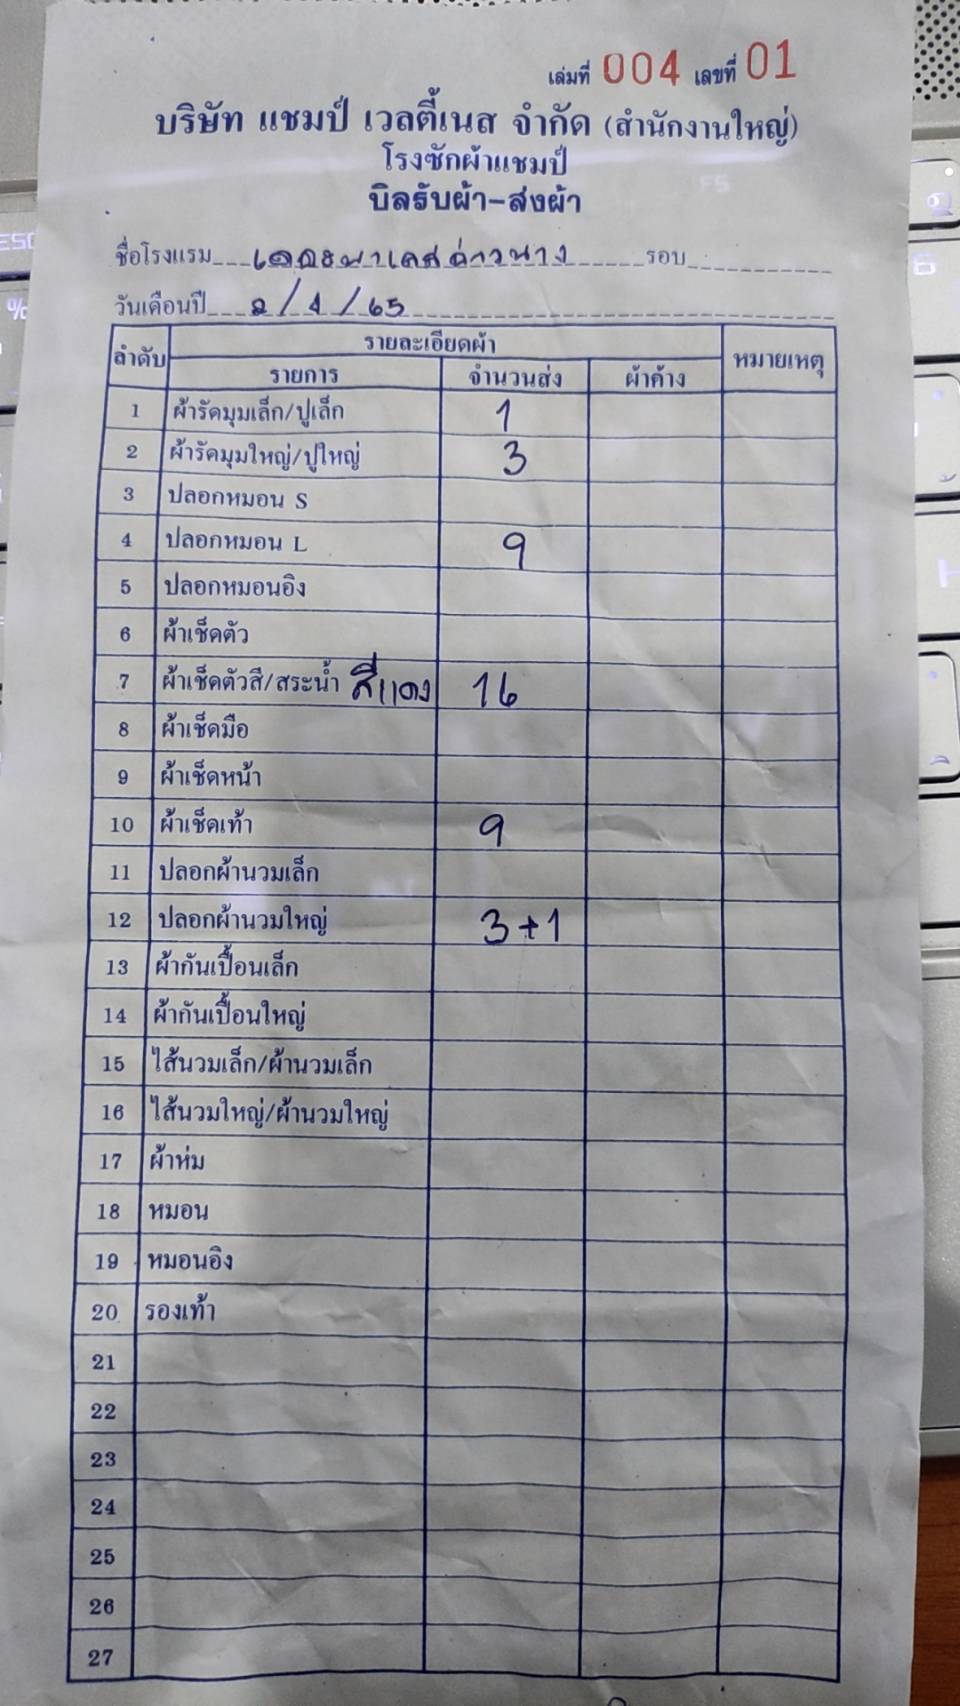 เล่มที่ 004 เลขที่ 01
บริษัท แชมป์ เวลตี้เนส จำกัด (สำนักงานใหญ่)
โรงซักผ้าแชมป์
บิลรับผ้า-ส่งผ้า
ชื่อโรงแรม เดอะพาเลศอ่าวนาง รอบ
วันเดือนปี 2/1/65
ลำดับ รายละเอียดผ้า หมายเหตุ
รายการ จำนวนส่ง ผ้าค้าง
1 ผ้ารัดมุมเล็ก/ปูเล็ก 1
2 ผ้ารัดมุมใหญ่/ปูใหญ่ 3
3 ปลอกหมอน S
4 ปลอกหมอน L 9
5 ปลอกหมอนอิง
6 ผ้าเช็ดตัว
7 ผ้าเช็ดตัวสี/สระน้ำ สีแดง 16
8 ผ้าเช็ดมือ
9 ผ้าเช็ดหน้า
10 ผ้าเช็ดเท้า 9
11 ปลอกผ้านวมเล็ก
12 ปลอกผ้านวมใหญ่ 3+1
13 ผ้ากันเปื้อนเล็ก
14 ผ้ากันเปื้อนใหญ่
15 ไส้นวมเล็ก/ผ้านวมเล็ก
16 ไส้นวมใหญ่/ผ้านวมใหญ่
17 ผ้าห่ม
18 หมอน
19 หมอนอิง
20 รองเท้า
21
22
23
24
25
26
27